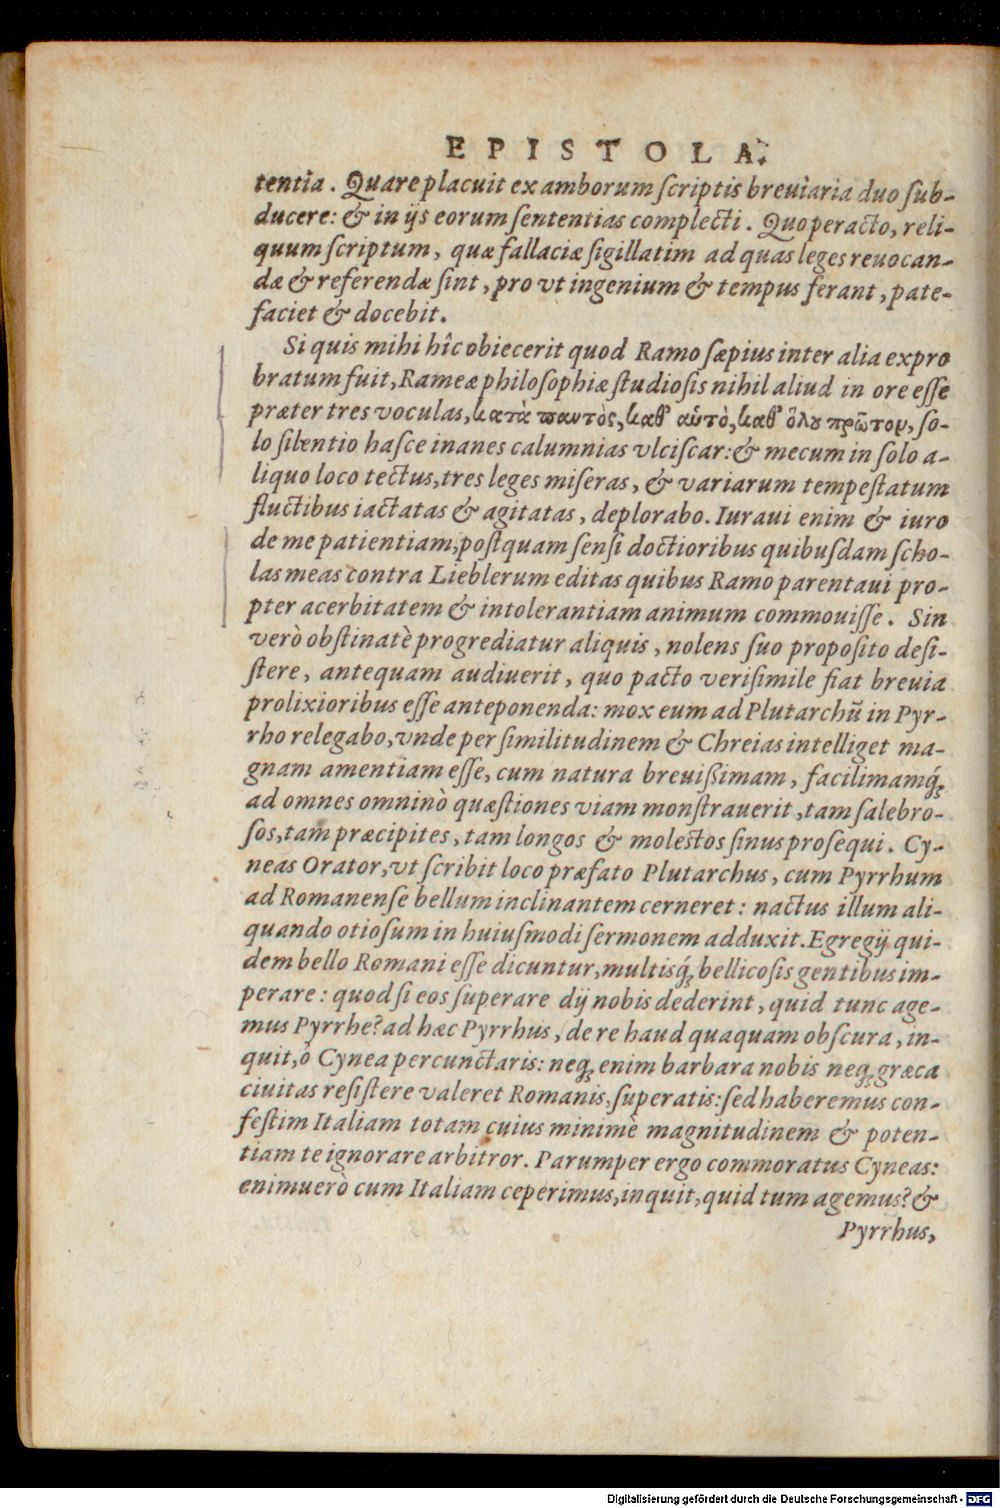 EPISTOLA.
tentia. Quare placuit ex amborum scriptis breuiaria duo sub-
ducere: & in ijs eorum sententias complecti. Quo peracto, reli-
quum scriptum, quæ fallaciæ sigillatim ad quas leges reuocan-
dæ & referendæ sint, pro vt ingenium & tempus ferant, pate-
faciet & docebit.
Si quis mihi hîc obiecerit quod Ramo sæpius inter alia expro
bratum fuit, Rameæ philosophiæ studiosis nihil aliud in ore esse
præter tres voculas, κατὰ παντὸς, καθ' αὑτὸ, καθ' ὅλου πρῶτον, so-
lo silentio hasce inanes calumnias vlciscar: & mecum in solo a-
liquo loco tectus, tres leges miseras, & variarum tempestatum
fluctibus iactatas & agitatas, deplorabo. Iuraui enim & iuro
de me patientiam, postquam sensi doctioribus quibusdam scho-
las meas contra Lieblerum editas quibus Ramo parentaui pro-
pter acerbitatem & intolerantiam animum commouisse. Sin
verò obstinatè progrediatur aliquis, nolens suo proposito desi-
stere, antequam audiuerit, quo pacto verisimile fiat breuia
prolixioribus esse anteponenda: mox eum ad Plutarchũ in Pyr-
rho relegabo, vnde per similitudinem & Chreias intelliget ma-
gnam amentiam esse, cum natura breuißimam, facilimamq́;
ad omnes omninò quæstiones viam monstrauerit, tam salebro-
sos, tam præcipites, tam longos & molestos sinus prosequi. Cy-
neas Orator, vt scribit loco præfato Plutarchus, cum Pyrrhum
ad Romanense bellum inclinantem cerneret: nactus illum ali-
quando otiosum in huiusmodi sermonem adduxit. Egregij qui-
dem bello Romani esse dicuntur, multisq́; bellicosis gentibus im-
perare: quod si eos superare dij nobis dederint, quid tunc age-
mus Pyrrhe? ad hæc Pyrrhus, de re haud quaquam obscura, in-
quit, ô Cynea percunctaris: neq; enim barbara nobis neq; græca
ciuitas resistere valeret Romanis, superatis: sed haberemus con-
festim Italiam totam cuius minimè magnitudinem & poten-
tiam te ignorare arbitror. Parumper ergo commoratus Cyneas:
enimuerò cum Italiam ceperimus, inquit, quid tum agemus? &
Pyrrhus,
Digitalisierung gefördert durch die Deutsche Forschungsgemeinschaft - DFG